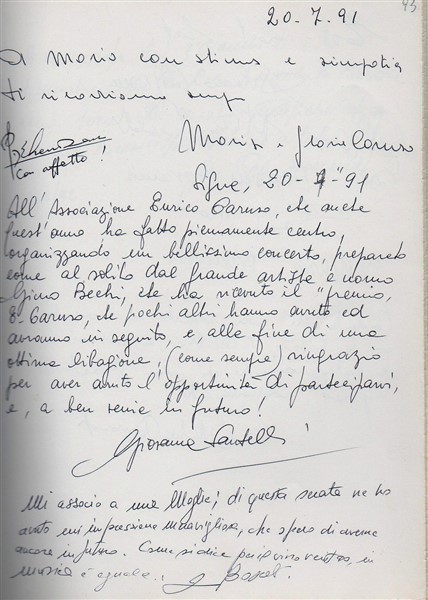 43
20.7.91
A Mario con stima e simpatia
ti ricordiamo
con affetto!
Maria e
Signe, 20-7-91
All'Associazione Enrico Caruso, che anche
quest'anno ha fatto pienamente centro,
organizzando un bellissimo concerto, preparato
come al solito dal grande artista e uomo
Gino Bechi, che ha ricevuto il "premio,
E. Caruso, che pochi altri hanno avuto ed
avranno in seguito, e, alla fine di una
ottima libagione, (come sempre) ringrazio
per aver avuto l'opportunità di parteciparvi,
e, a ben venire in futuro!
Giovanna
Mi associo a mia Moglie; di questa serata ne ho
avuto un'impressione meravigliosa, che spero di averne
ancora in futuro. Come si dice in
musica è eguale..